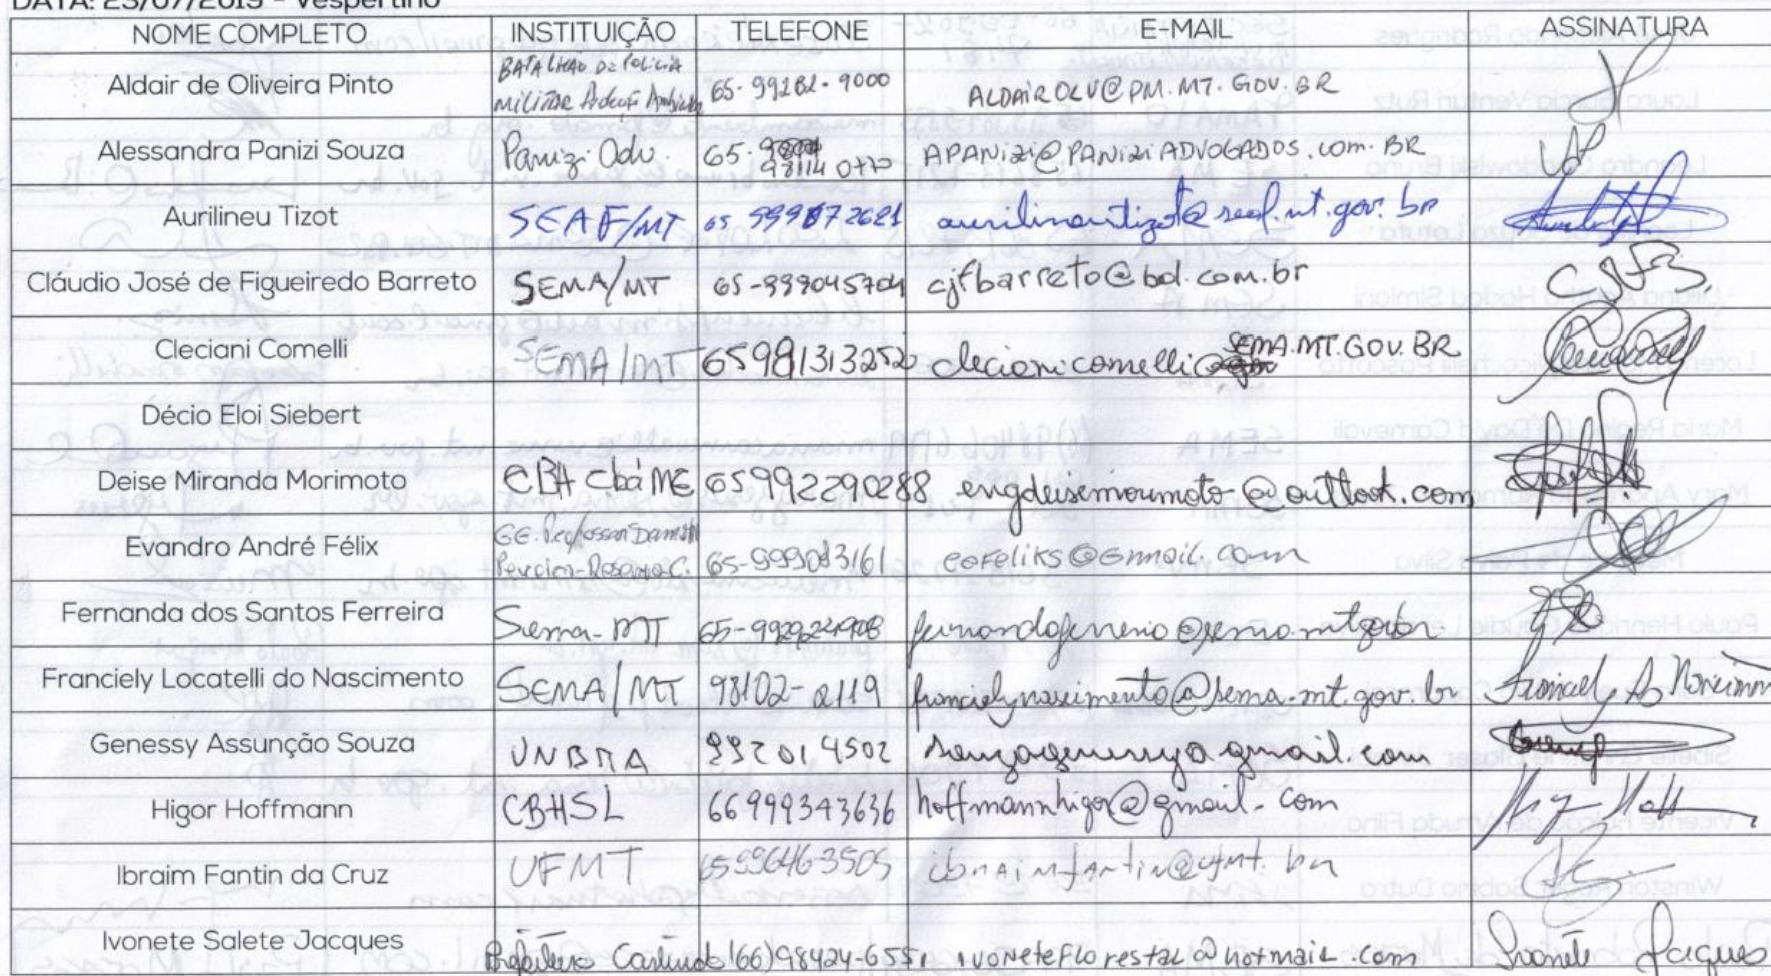 DATA: 23/07/2019 - Vespertino
NOME COMPLETO INSTITUIÇÃO TELEFONE E-MAIL ASSINATURA
Aldair de Oliveira Pinto BATALHÃO DE POLICIA MILITAR Proteção Ambiental 65-99282-9000 ALDAIROLV@PM.MT.GOV.BR
Alessandra Panizi Souza Panizi Adv. 65- 98114 0770 APANIZI@PANIZIADVOGADOS.COM.BR
Aurilineu Tizot SEAF/MT 65 999872621 aurilineutizot@seaf.mt.gov.br
Cláudio José de Figueiredo Barreto SEMA/MT 65-999045704 cjfbarreto@bol.com.br CJFB
Cleciani Comelli SEMA/MT 65981313252 clecianicomelli@SEMA.MT.GOV.BR
Décio Eloi Siebert
Deise Miranda Morimoto CBH Cbá ME 65992290288 engdeisemorimoto@outlook.com
Evandro André Félix EE. Professor Pereira 65-999083161 eafeliks@gmail.com
Fernanda dos Santos Ferreira Sema-MT 65-992924908 fernandaferreira@sema.mt.gov.br
Franciely Locatelli do Nascimento SEMA/MT 98102-2119 francielynascimento@sema.mt.gov.br
Genessy Assunção Souza 992014502 souzagenessy@gmail.com
Higor Hoffmann CBHSL 66999343636 hoffmannhigor@gmail.com
Ibraim Fantin da Cruz UFMT 65996463505 ibraimfantin@ufmt.br
Ivonete Salete Jacques (66)98424-655 ivoneteflorestal@hotmail.com Ivonete Jacques